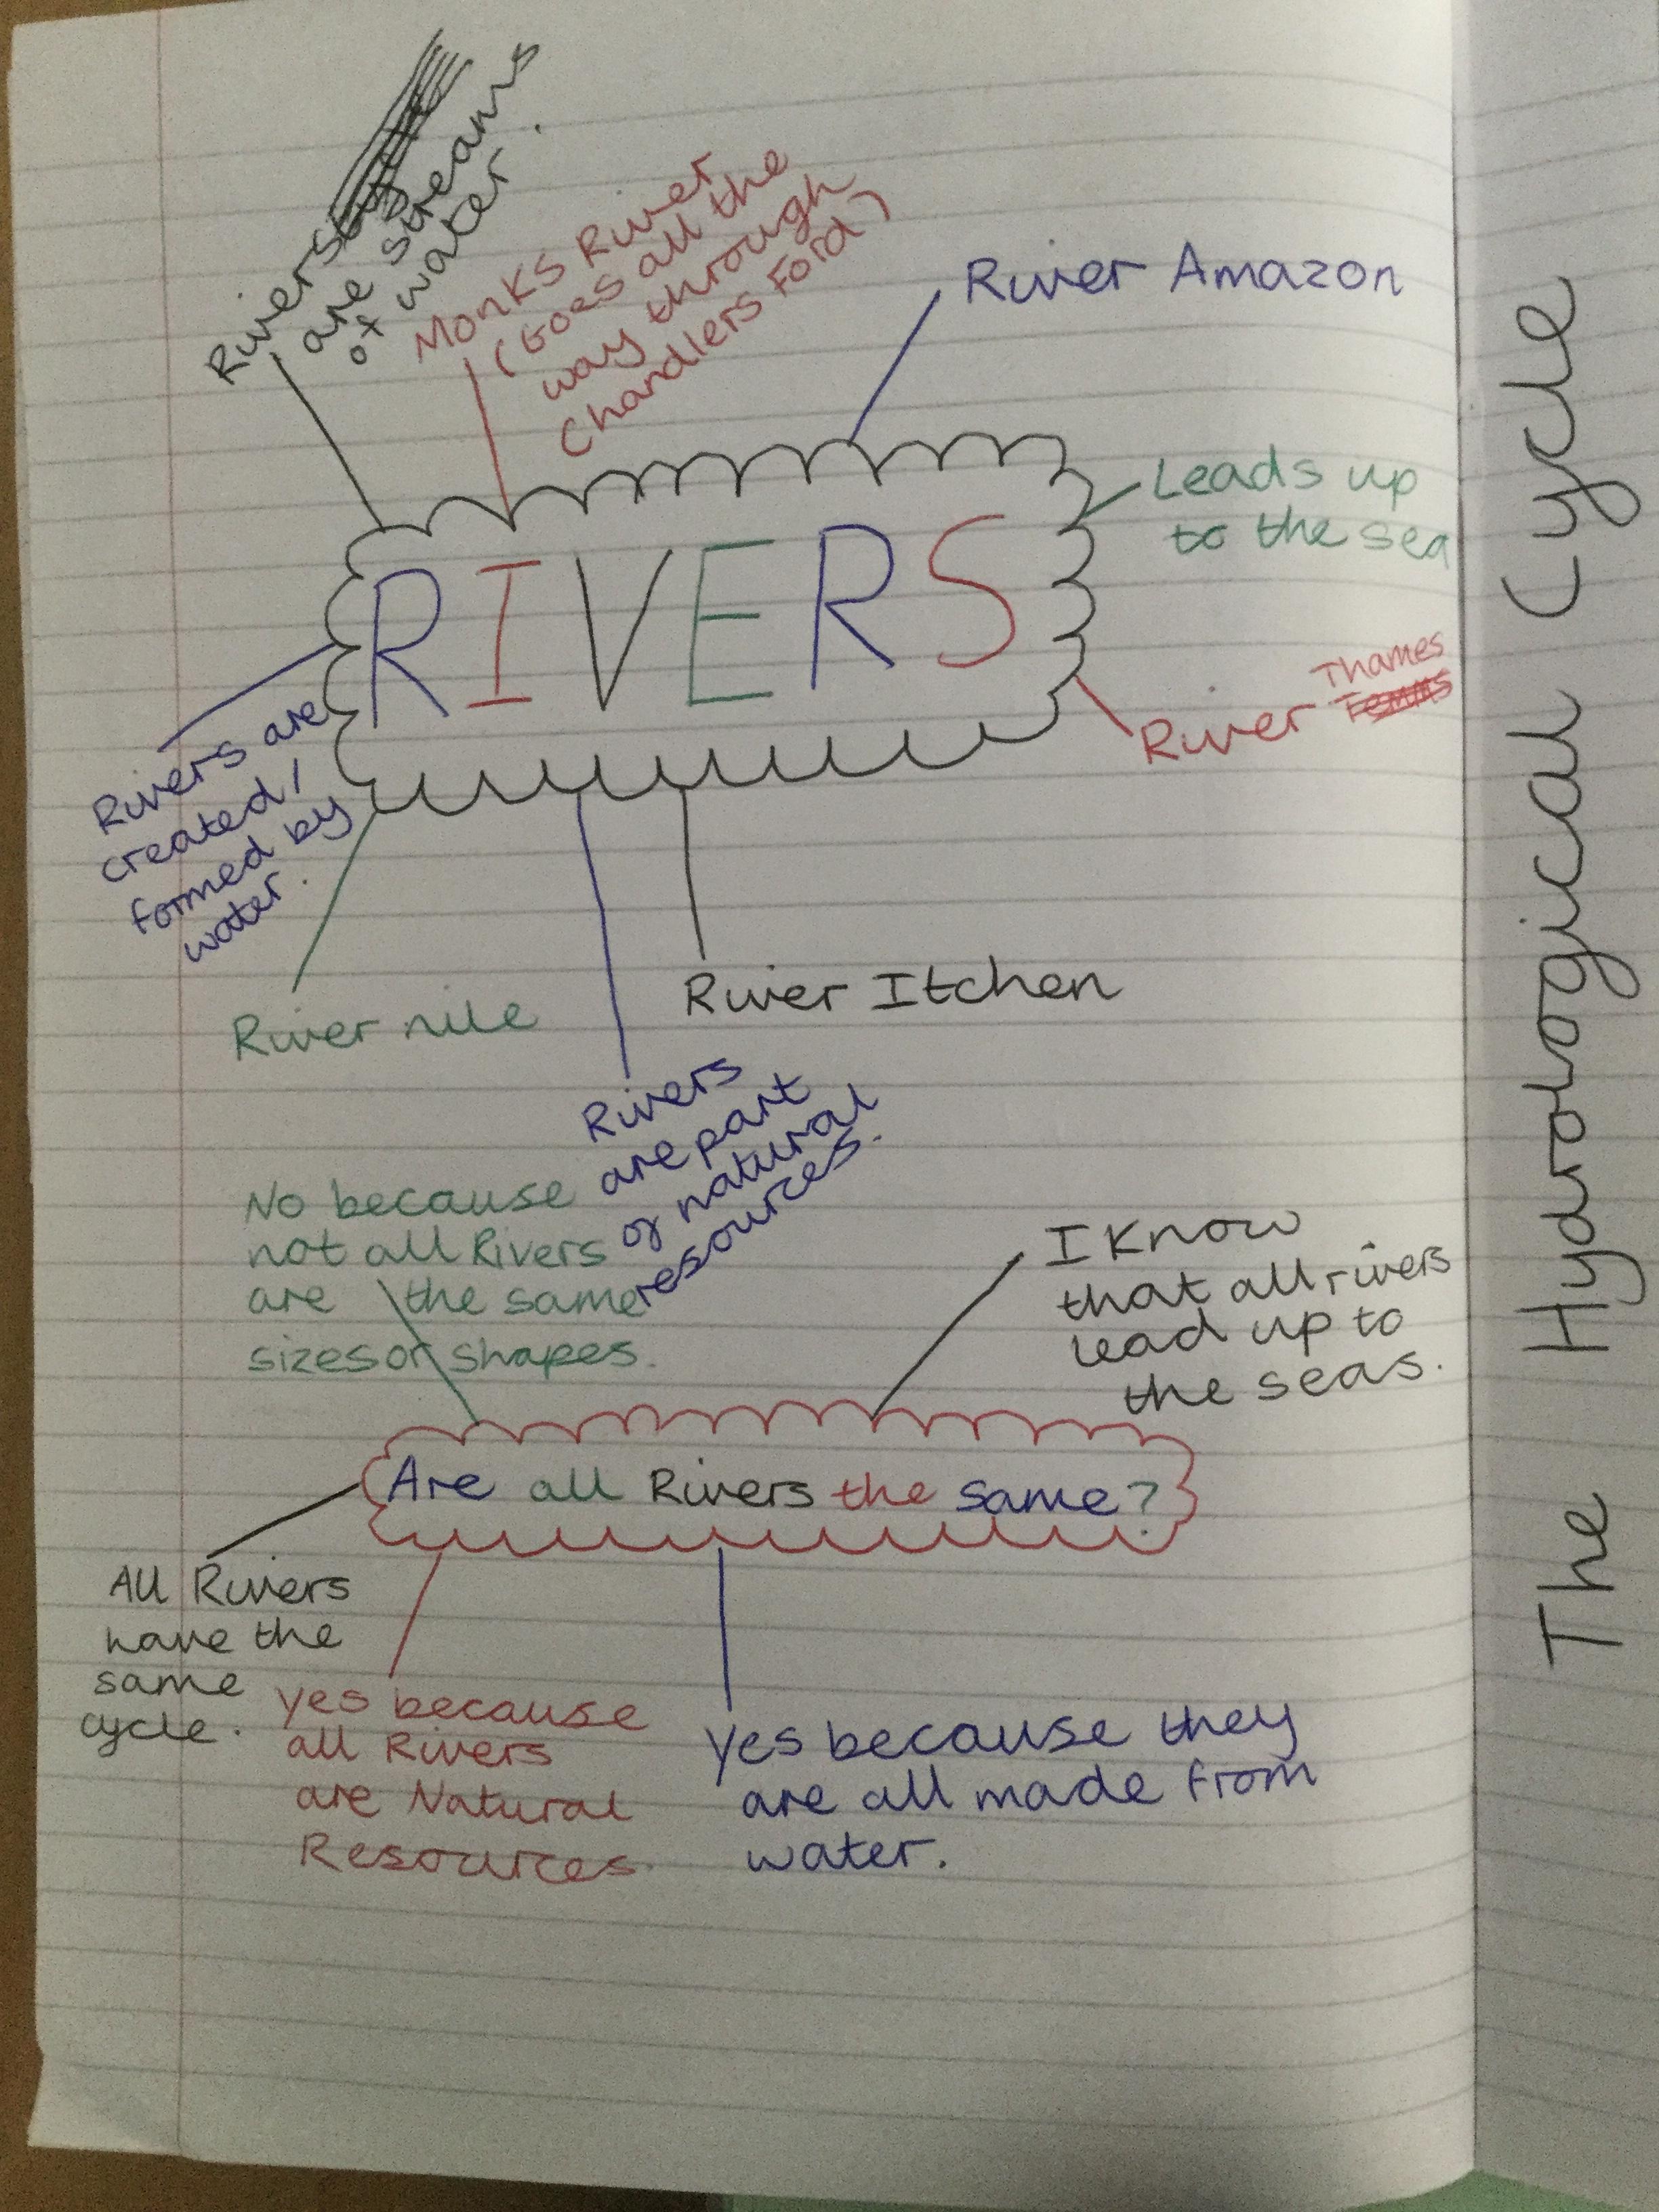 Rivers
are streams
of water.
Monks River
(Goes all the
way through
Chandlers Ford)
River Amazon
Leads up
to the sea
RIVERS
Thames
River Temms
Rivers are
created/
formed by
water.
River nile
River Itchen
Rivers
are part
of natural
resources.
No because
not all Rivers
are the same
sizes or shapes.
I know
that all rivers
lead up to
the seas.
Are all Rivers the same?
All Rivers
have the
same
cycle.
yes because
all Rivers
are Natural
Resources.
yes because they
are all made from
water.
The Hydrological Cycle